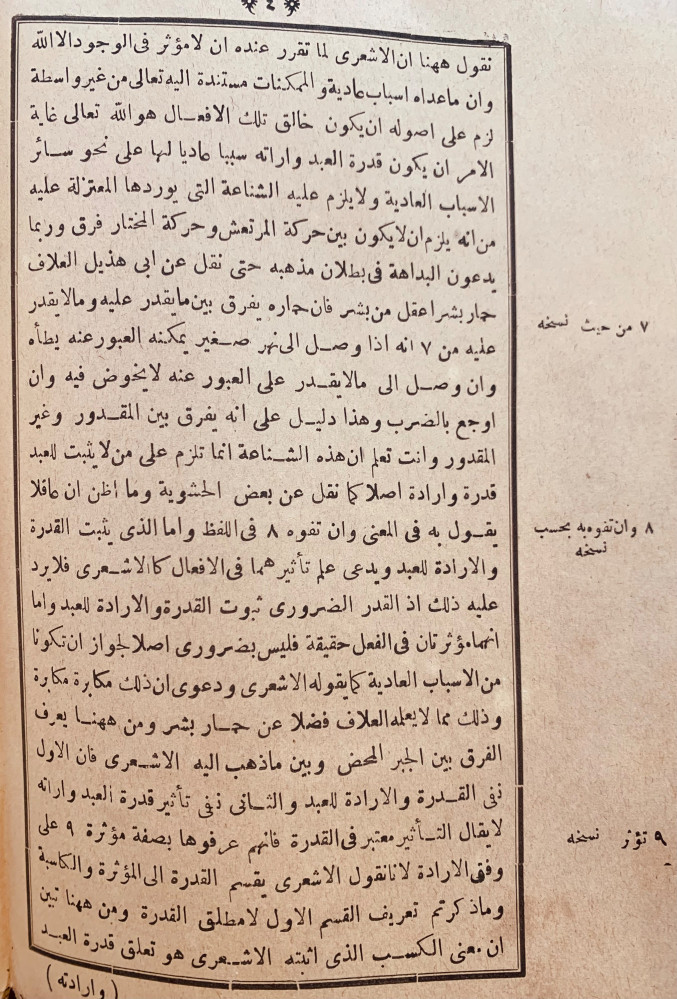 ٤
نقول ههنا ان الاشعرى لما تقرر عنده ان لا مؤثر فى الوجود الا الله
وان ماعداه اسباب عادية و الممكنات مستندة اليه تعالى من غير واسطة
لزم على اصوله ان يكون خالق تلك الافعال هو الله تعالى غاية
الامر ان يكون قدرة العبد وارادته سببا عاديا لها على نحو سائر
الاسباب العادية ولا يلزم عليه الشناعة التى يوردها المعتزلة عليه
من انه يلزم ان لا يكون بين حركة المرتعش وحركة المختار فرق وربما
يدعون البداهة فى بطلان مذهبه حتى نقل عن ابى هذيل العلاف
حمار بشر اعقل من بشر فان حماره يفرق بين ما يقدر عليه وما لا يقدر
عليه من ٧ انه اذا وصل الى نهر صغير يمكنه العبور عنه يطأه
وان وصل الى ما لا يقدر على العبور عنه لا يخوض فيه وان
اوجع بالضرب وهذا دليل على انه يفرق بين المقدور وغير
المقدور وانت تعلم ان هذه الشناعة انما تلزم على من لا يثبت للعبد
قدرة وارادة اصلا كما نقل عن بعض الحشوية وما اظن ان عاقلا
يقول به فى المعنى وان تفوه ٨ فى اللفظ واما الذى يثبت القدرة
والارادة للعبد ويدعى علم تأثيرهما فى الافعال كالاشعرى فلا يرد
عليه ذلك اذ القدر الضرورى ثبوت القدرة والارادة للعبد واما
انهما مؤثرتان فى الفعل حقيقة فليس بضرورى اصلا لجواز ان تكونا
من الاسباب العادية كما يقوله الاشعرى ودعوى ان ذلك مكابرة مكابرة
وذلك مما لا يعلمه العلاف فضلا عن حمار بشر ومن ههنا يعرف
الفرق بين الجبر المحض وبين ما ذهب اليه الاشعرى فان الاول
نفى القدرة والارادة للعبد والثانى نفى تأثير قدرة العبد وارادته
لا يقال التأثير معتبر فى القدرة فانهم عرفوها بصفة مؤثرة ٩ على
وفق الارادة لانا نقول الاشعرى يقسم القدرة الى المؤثرة والكاسبة
وما ذكرتم تعريف القسم الاول لا مطلق القدرة ومن ههنا تبين
ان معنى الكسب الذى اثبته الاشعرى هو تعلق قدرة العبد
( وارادته )
٧ من حيث نسخه
٨ وان تفوه به بحسب
نسخه
٩ تؤثر نسخه